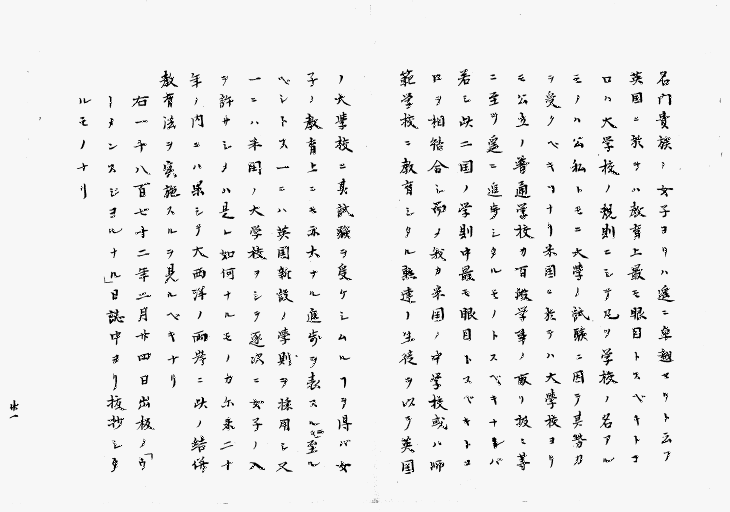 名門貴族ノ女子ヨリハ遥ニ卓越セリト云フ
英国ニ於テハ教育上最モ眼目トスベキトキ
ロハ大学校ノ規則ニシテ凡ソ学校ノ名アル
モノハ公私トモニ大学ノ試験ニ因テ其学力
ヲ受クベキヿナリ米国ニ於テハ大学校ヨリ
モ公立ノ普通学校カ百般学事ノ取リ扱ニ等
ニ至リ遥ニ進歩シタルモノトスベキナレバ
若シ此二国ノ学則中最モ眼目トスベキトコ
ロヲ相結合シ而メ我カ米国ノ中学校或ハ師
範学校ニ教育シタル熟達ノ生徒ヲ以テ英国
ノ大学校ニ其試験ヲ受ケシムルヿヲ得バ女
子ノ教育上ニモ亦大ナル進歩ヲ表スルニ至ル
ベシトス一ニハ英国新設ノ学則ヲ採用シ又
一ニハ米国ノ大学校ヲシテ逐次ニ女子ノ入
ヲ許サシメハ是レ如何ナルモノカ尓来二十
年ノ内ニハ果シテ大西洋ノ両岸ニ此ノ結構
教育法ヲ実施スルヲ見ルベキナリ
右一千八百七十二年二月廿四日出板ノ「ウ
ーメンスジヨルナル」日誌中ヨリ抜抄シタ
ルモノナリ